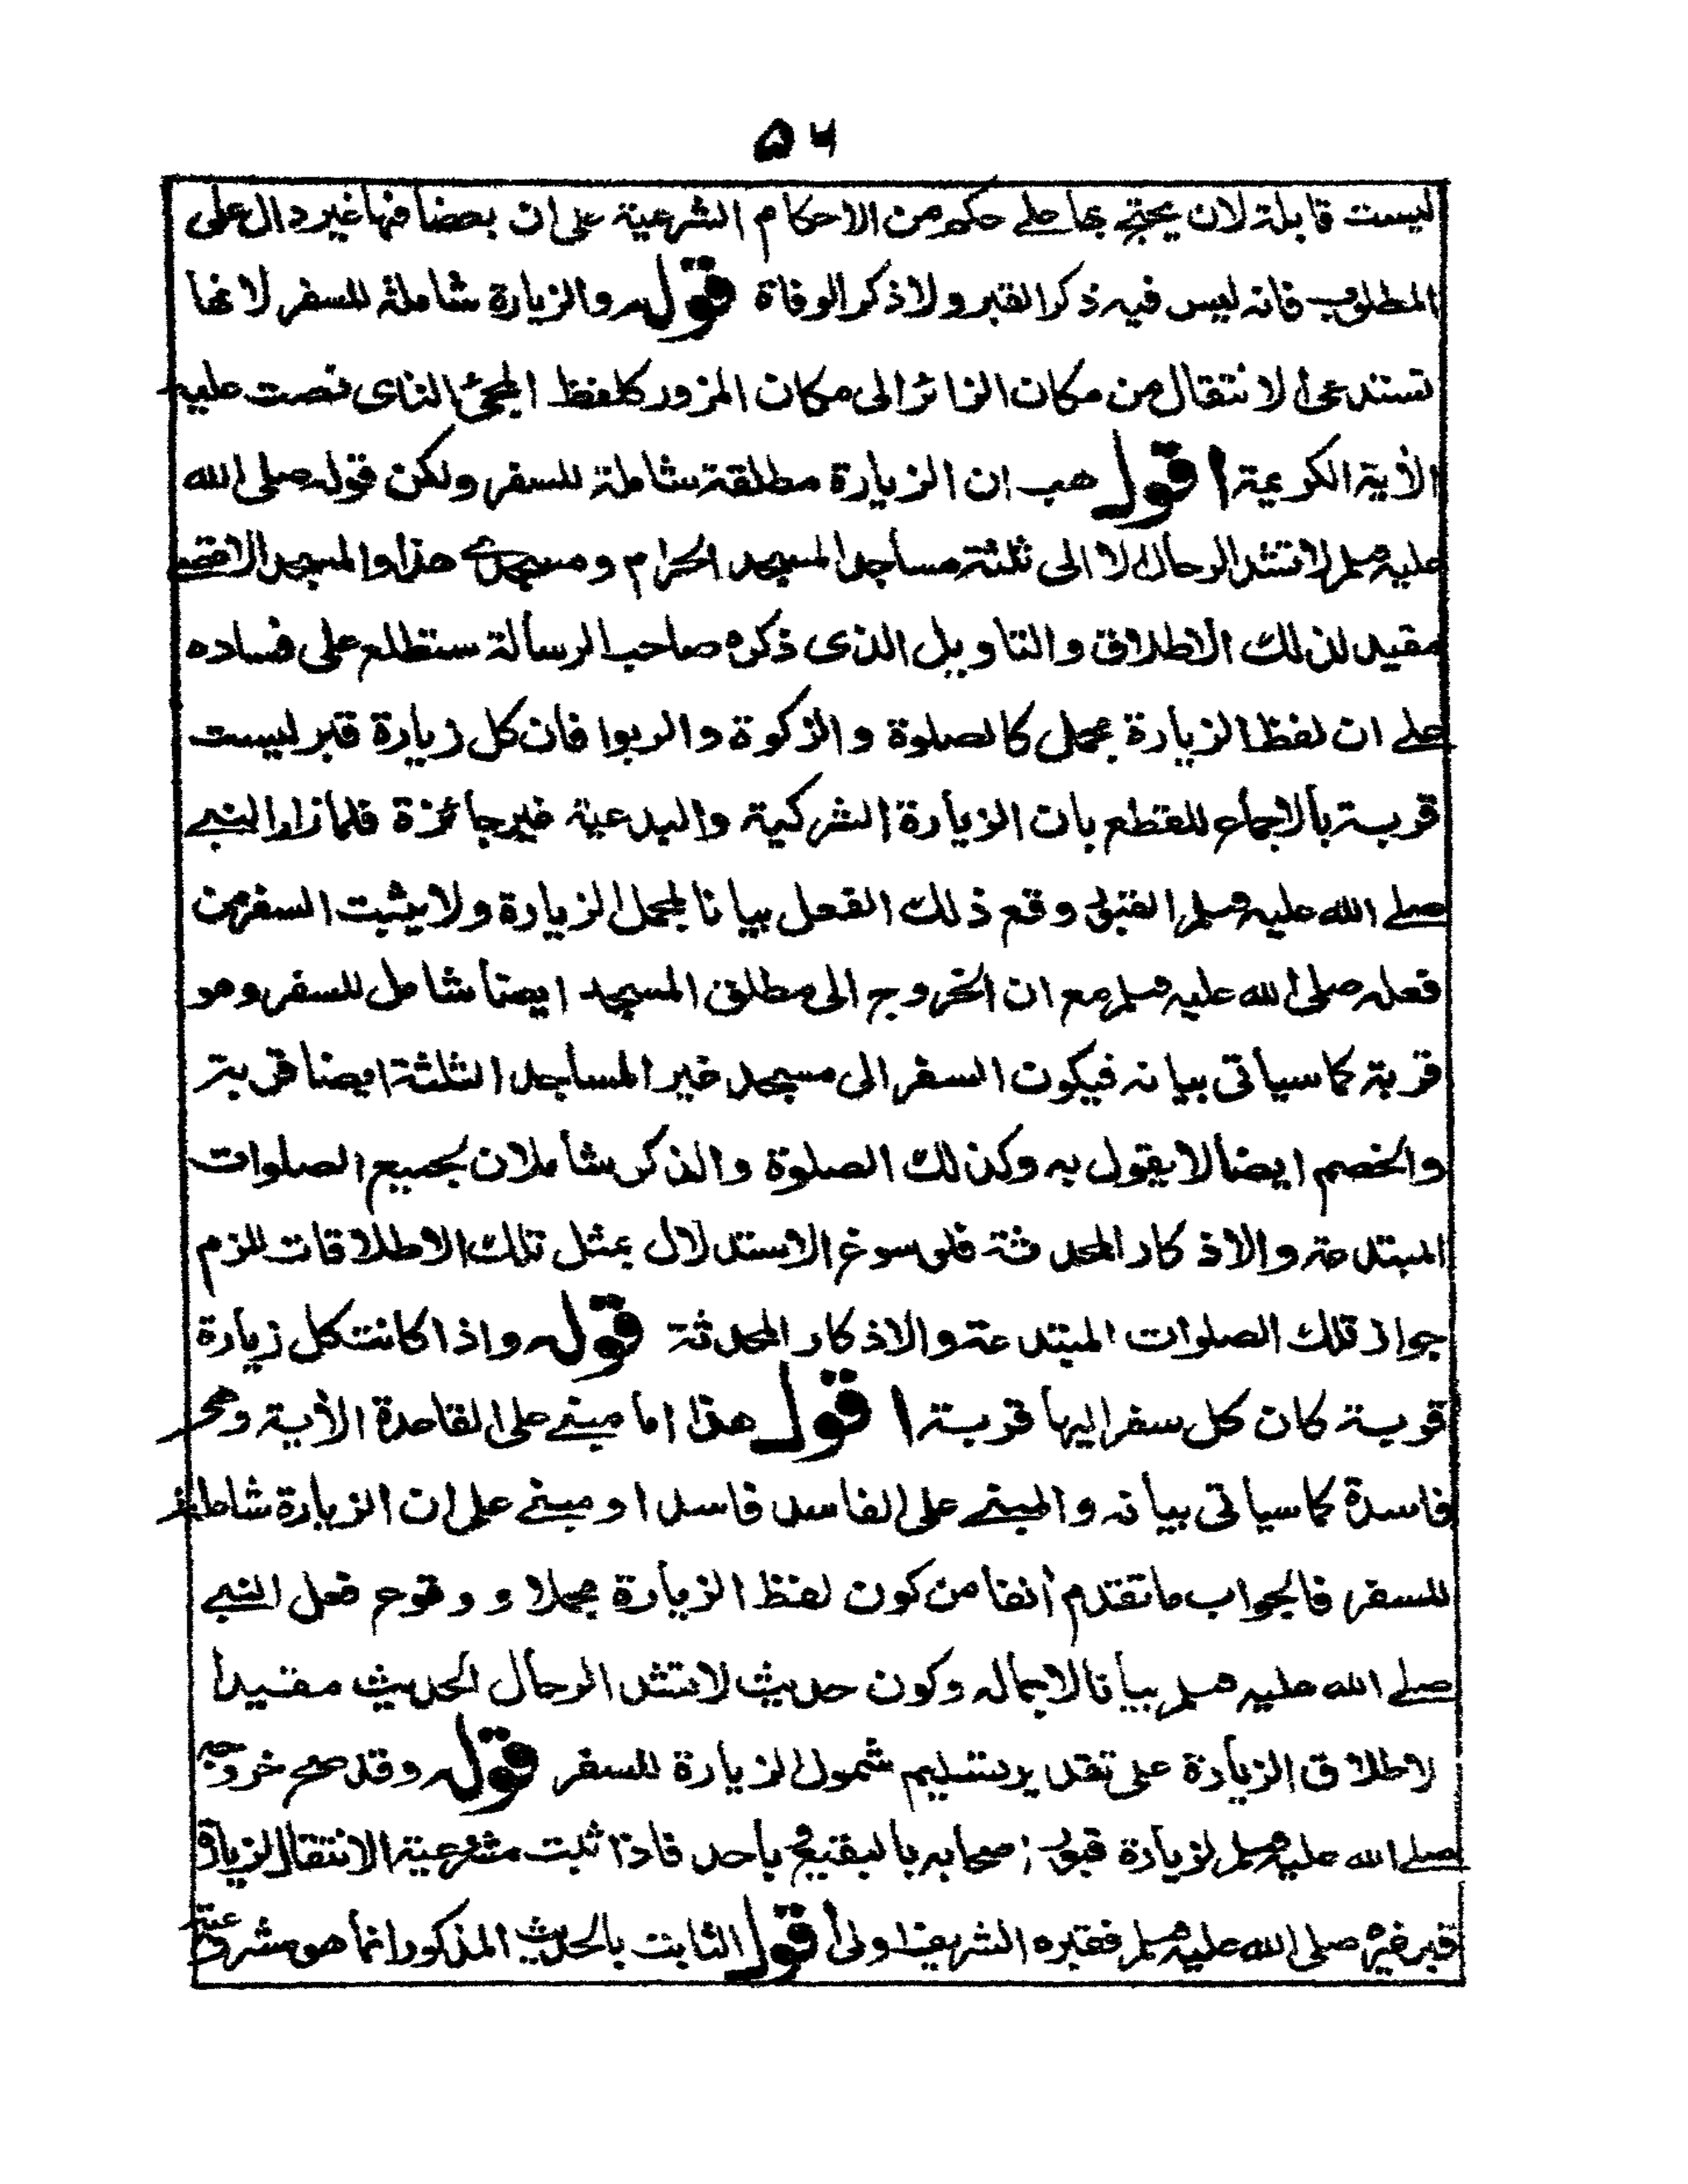 ۵۶
ليست قابلة لان يحتج بها على حكم من الاحكام الشرعية على ان بعضا منها غير دال على
المطلوب فانه ليس فيه ذكر القبر ولا ذكر الوفاة قوله والزيارة شاملة للسفر لانها
تستدعى الانتقال من مكان الزائر الى مكان المزور كلفظ المجئ الذى نصت عليه
الأية الكريمة اقول هب ان الزيارة مطلقة شاملة للسفر ولكن قوله صلى الله
عليه وسلم لا تشد الرحال الا الى ثلثة مساجد المسجد الحرام ومسجدى هذا والمسجد الاقصى
مقيد لذلك الاطلاق والتاويل الذى ذكره صاحب الرسالة ستطلع على فساده
على ان لفظ الزيارة مجمل كالصلوة والزكوة والربوا فان كل زيارة قبر ليست
قربة بالاجماع للقطع بان الزيارة الشركية والبدعية غير جائزة فلما زار النبى
صلى الله عليه وسلم القبور وقع ذلك الفعل بيانا لمجمل الزيارة ولا يثبت السفر من
فعله صلى الله عليه وسلم مع ان الخروج الى مطلق المسجد ايضا شامل للسفر وهو
قربة كما سياتى بيانه فيكون السفر الى مسجد غير المساجد الثلثة ايضا قربة
والخصم ايضا لا يقول به وكذلك الصلوة والذكر شاملان لجميع الصلوات
المبتدعة والاذكار المحدثة فلو سوغ الاستدلال بمثل تلك الاطلاقات للزم
جواز تلك الصلوات المبتدعة والاذكار المحدثة قوله واذا كانت كل زيارة
قربة كان كل سفر اليها قربة اقول هذا اما مبنى على القاعدة الأتية وهى
فاسدة كما سياتى بيانه والمبنى على الفاسد فاسد او مبنى على ان الزيارة شاملة
للسفر فالجواب ما تقدم أنفا من كون لفظ الزيارة مجملا و وقوع فعل النبى
صلى الله عليه وسلم بيانا لاجماله وكون حديث لا تشد الرحال الحديث مقيدا
لاطلاق الزيارة على تقدير تسليم شمول الزيارة للسفر قوله وقد صح خروجه
صلى الله عليه وسلم لزيارة قبور اصحابه بالبقيع وباحد فاذا ثبت مشرعية الانتقال لزيارة
قبر غيره صلى الله عليه وسلم فقبره الشريف اولى اقول الثابت بالحديث المذكور انما هو مشروعية